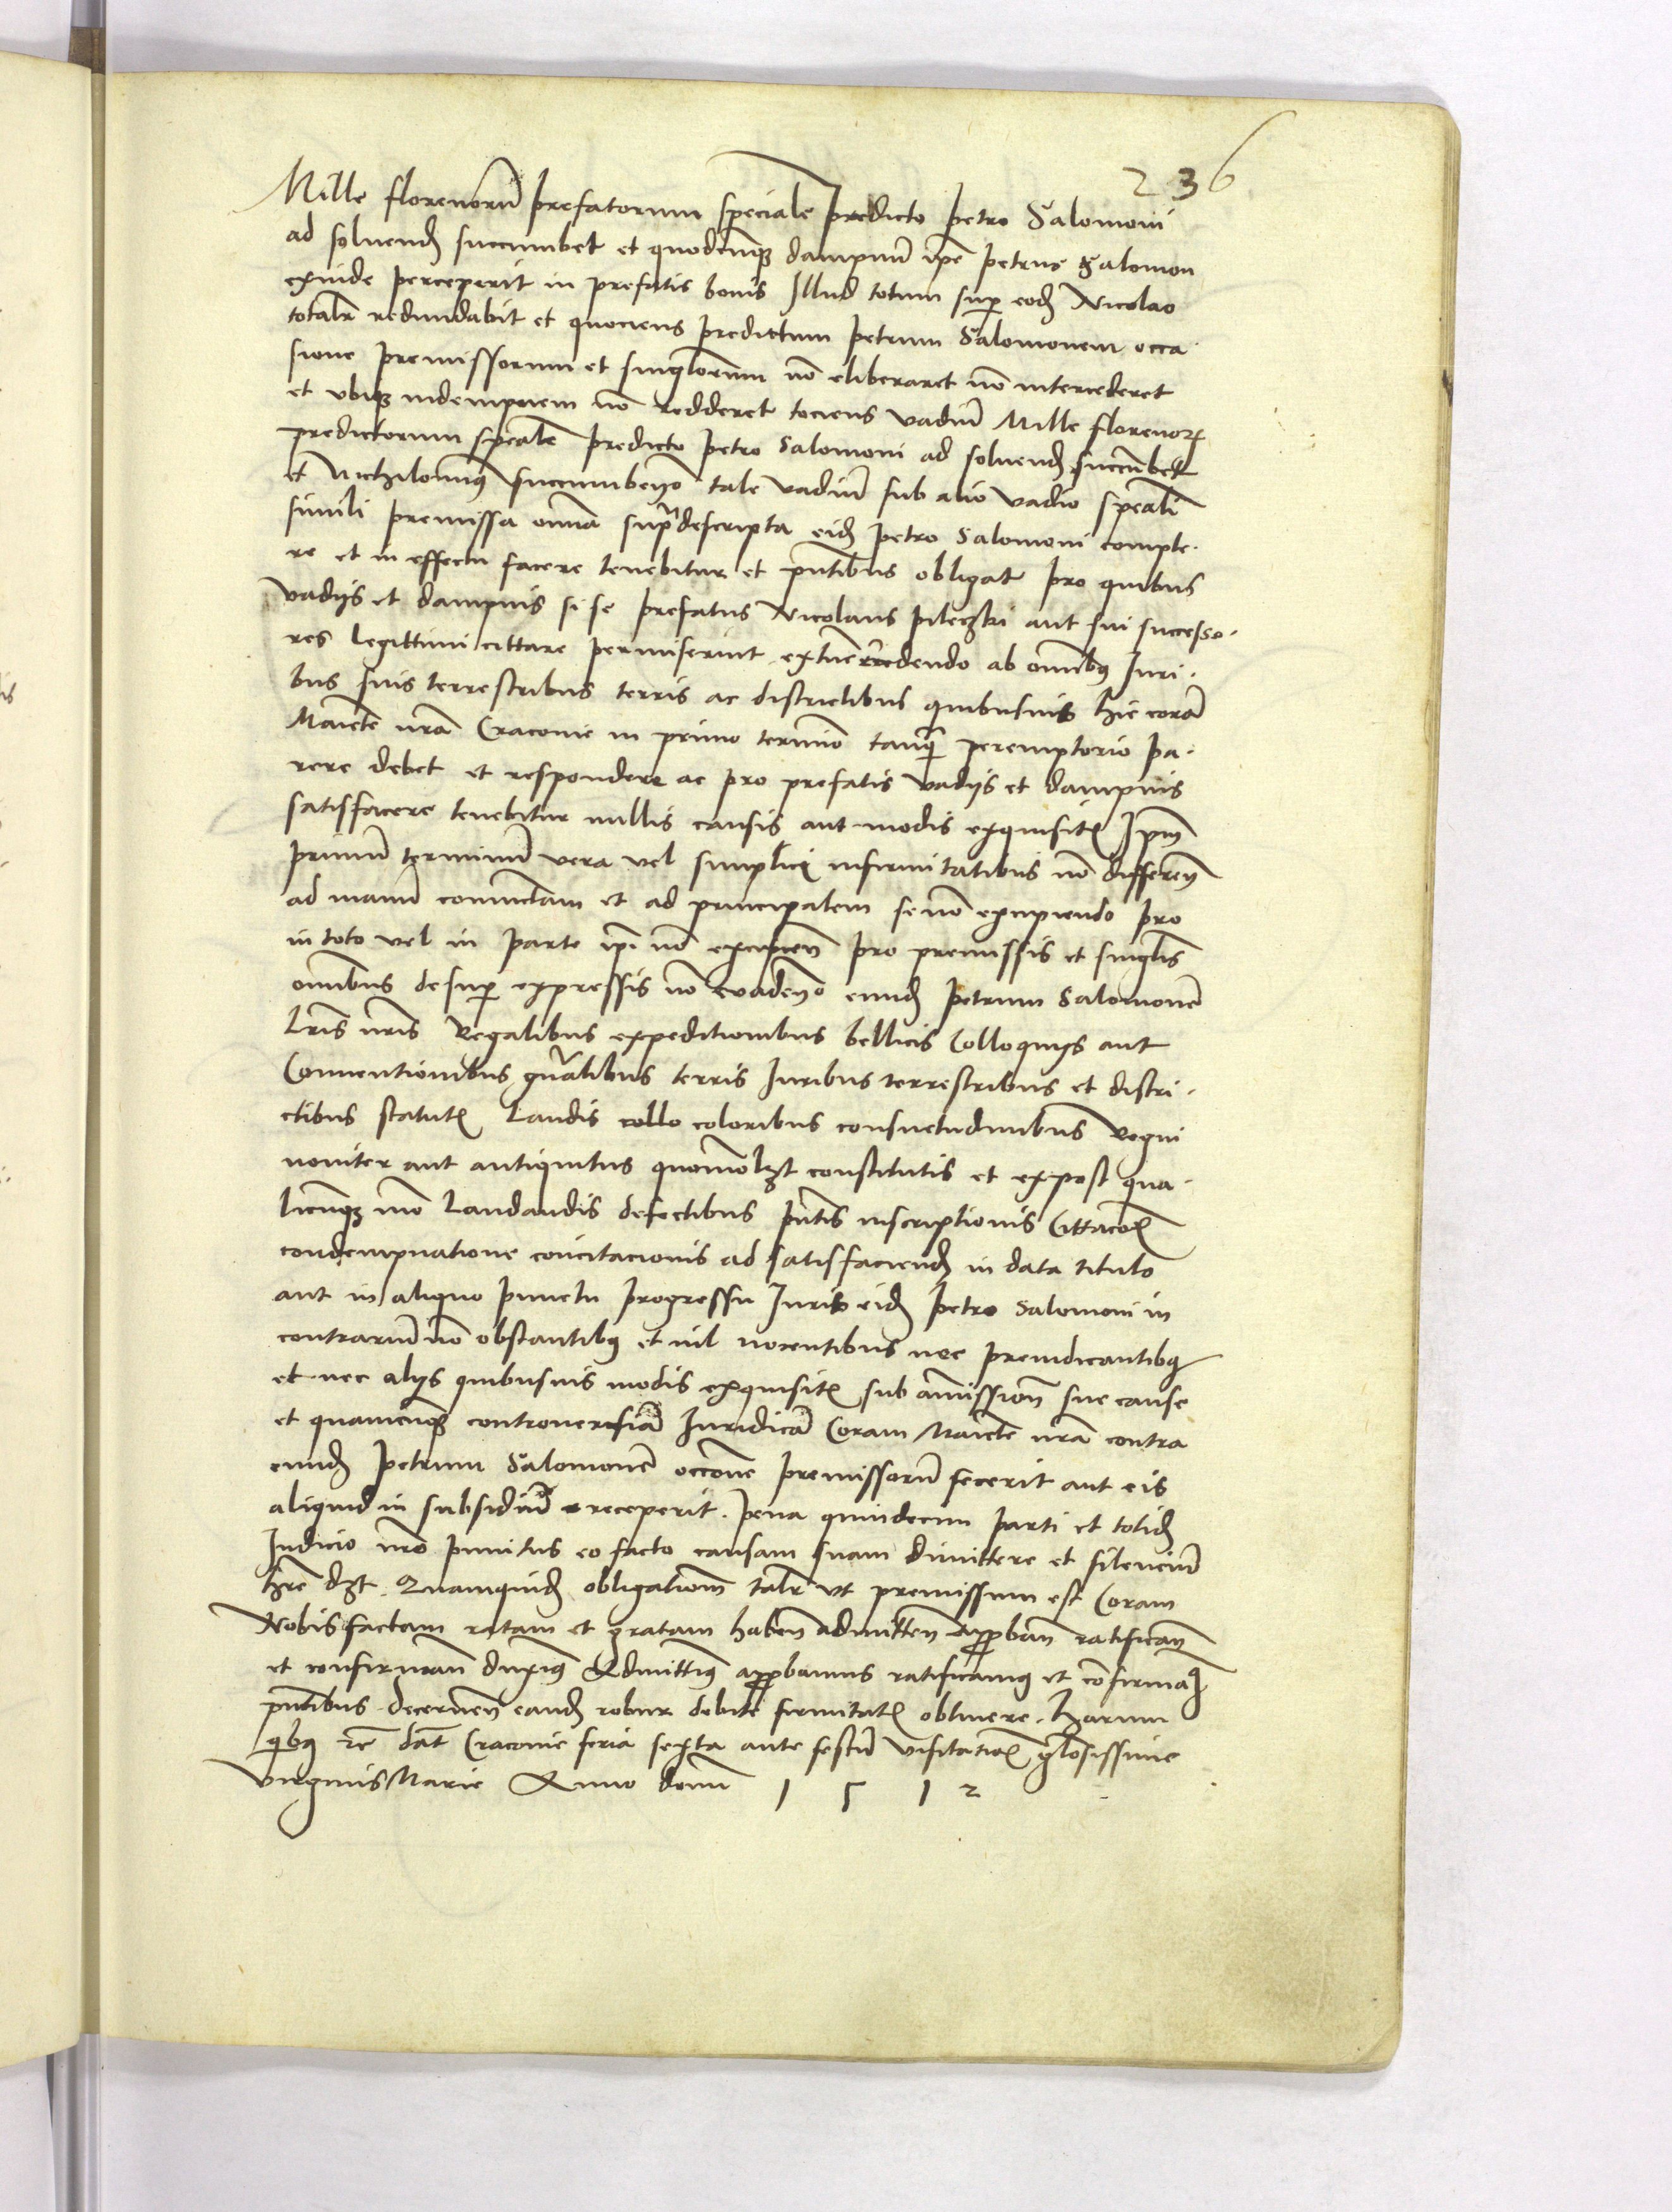 236
Mille florenorū prefatorum speciale predicto Petro Salomoni
ad soluend̄ succumbet et quodcunq̄ dampnū ip̄e Petrus Salomon
exinde perceperit in prefatis bonis Illud totum sup̄ eod̄ Nicolao
totalr̄ redundabit et quociens predictum Petrum Salomonem occa
sione premissorum et singlorum nō eliberaret nō intercederet
et vbiq̄ indempnem nō redderet tociens vadiū Mille florenoꝝ
predictorum speciale predicto Petro Salomoni ad soluend̄ succūbet
et Nichilominꝰ succumbendo tale vadiū sub alio vadio speciali
simili premissa om̄ia supradescripta eid̄ Petro Salomoni comple
re et in effectu facere tenebitur et pn̄tibus obligat̄ pro quibus
vadijs et dampnis si se prefatus Nicolaus Pileczki aut sui successo
res legittimi cittare permiserint extūc recedendo ab om̄ibꝰ Iuri
bus suis terrestribus terris ac districtibus quibusuis hic corā
Maiestē nr̄a Cracouie in primo termīo tanq̄ peremptorio pa
rere debet et respondere ac pro prefatis vadijs et dampnis
satisfacere tenebitur nullis causis aut modis exquisitꝭ Ipm̄
primū terminū vera vel simplici infirmitatibus nō differen̄
ad manū coniunctam et ad principalem se nō excipiendo pro
in toto vel in parte ipī nō excipien̄ pro premissis et singlis
om̄ibus desup̄ expressis nō euadendo eund̄ Petrum Salomonē
Lr̄is nr̄is Regalibus expeditionibus bellicis Colloquijs aut
Conuentionibus gn̄alibus terris Iuribus terrestribus et distri
ctibus statutꝭ Laudis collo coloribus consuetudinibus Regni
nouiter aut antiquitus quomōlꝫt constitutis et expost qua
licunqꝫ mō Laudandis defectibus pn̄tis inscriptionis Cittacōꝭ
condempnatione concitacionis ad satisfaciend̄ in data titulo
aut in aliquo punctu progressu Iuris eid̄ Petro Salomoni in
contrariū nō obstantibꝰ et nil nocentibus nec preiudicantibꝰ
et nec alijs quibusuis modis exquisitꝭ sub amission̄ sue cause
et quamcunq̄ controuersiā Iuridicā Coram Maiestē nr̄a contra
eund̄ Petrum Salomonē occōne premissorū fecerit aut eis
aliquid in subsidiū receperit. Pena quindecim parti et totid̄
Iudicio nr̄o punitus eo facto causam suam dimittere et silenciū
hr̄e dꝫt. Quamquid̄ obligationem talr̄ vt premissum est Coram
Nobis factam ratam et gratam haben̄ admitten̄ approban̄ ratifican̄
et confirman̄ duximꝰ Admittimꝰ approbamus ratificamꝰ et confirmamꝰ
pn̄tibus decernen̄ eand̄ robur debite firmitatꝭ obtinere. Harum
qibꝰ rē dat̄ Cracouie feria sexta ante festū visitationꝭ glosissime
virginis Marie Anno domī 1512